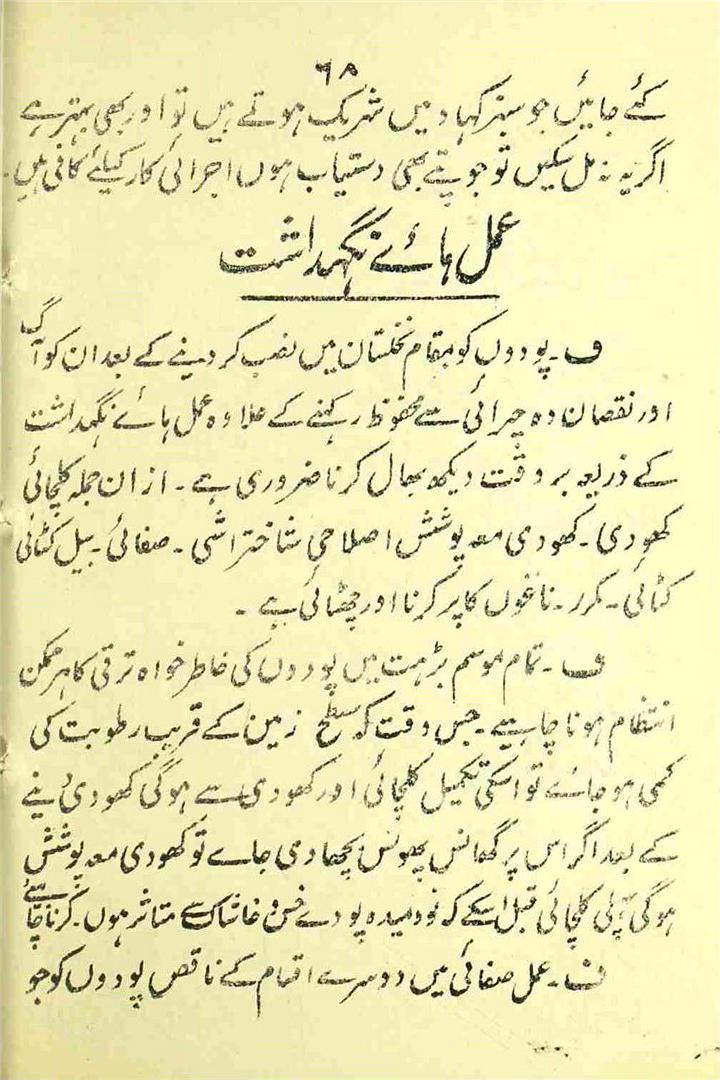 ۶۸
کئے جائیں جو سبز کہاد میں شریک ہوتے ہیں تو اور بھی بہتر ہے
اگر یہ نہ مل سکیں تو جو پتے بھی دستیاب ہوں اجرائی کار کیلئے کافی ہیں۔
عمل ہائے نگہداشت
ف۔ پودوں کو بمقام نخلستان میں نصب کر دینے کے بعد ان کو آگ
اور نقصان دہ چرائی سے محفوظ رکہنے کے علاوہ عمل ہائے نگہداشت
کے ذریعہ بر وقت دیکھ بھال کرنا ضروری ہے۔ ازان جملہ کلچائی
کھودی۔ کھودی معہ پوشش اصلاحی شاختراشی۔ صفائی۔ بیل کٹائی
کٹائی۔ مکرر۔ ناغوں کا پر کرنا اور چھٹائی ہے۔
ف۔ تمام موسم بڑہت میں پودوں کی خاطر خواہ ترقی کا ہر ممکن
انتظام ہونا چاہیے۔ جس وقت کہ سطح زمین کے قریب رطوبت کی
کمی ہو جائے تو اسکی تکمیل کلچائی اور کھودی سے ہوگی کھودی دینے
کے بعد اگر اس پر گھانس پھونس بچھا دی جاے تو کھودی معہ پوشش
ہوگی پہلی کلچائی قبل اسکے کہ نودمیدہ پودے خس و خاشاک سے متاثر ہوں۔ کرنا چاہئے
ف۔ عمل صفائی میں دوسرے اقسام کے ناقص پودوں کو جو